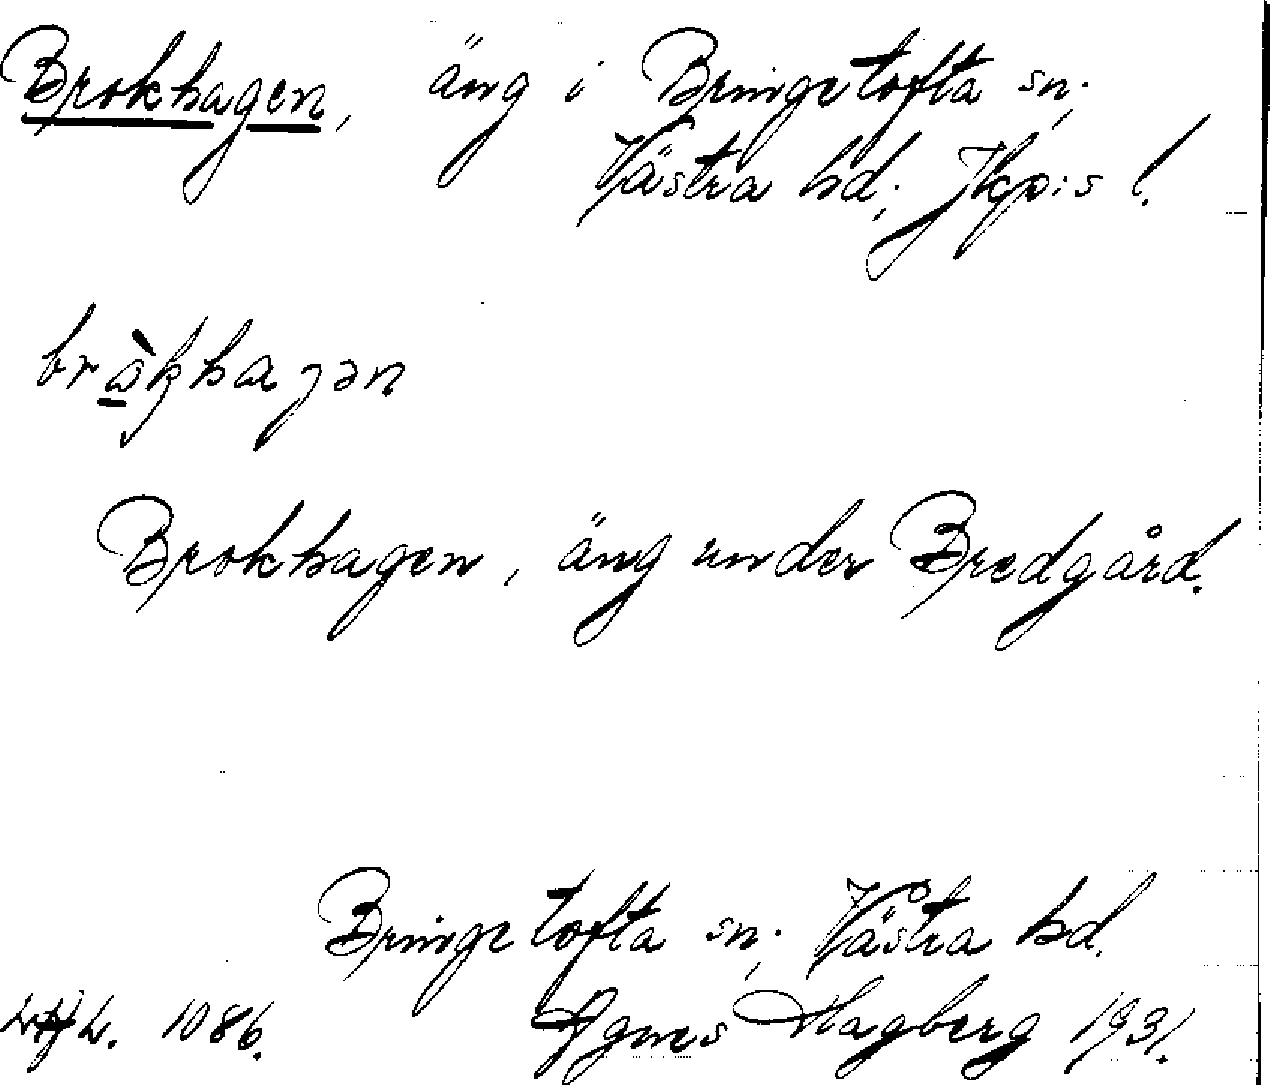 Brokhagen, äng i Bringetofta sn;
Västra hd; Jkp:s l.
bràkhagən
Brokhagen, äng under Bredgård.
Bringetofta sn; Västra hd.
1086. Agnes Hagberg 1931.